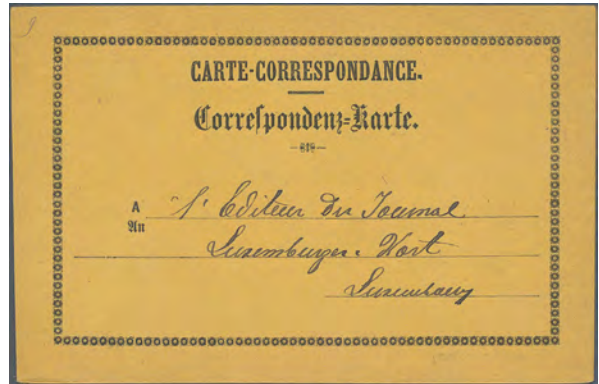 9
CARTE-CORRESPONDANCE.
Correſpondenz-Karte.
A l'Editeur du Journal
An
Luxemburger-Wort
Luxembourg